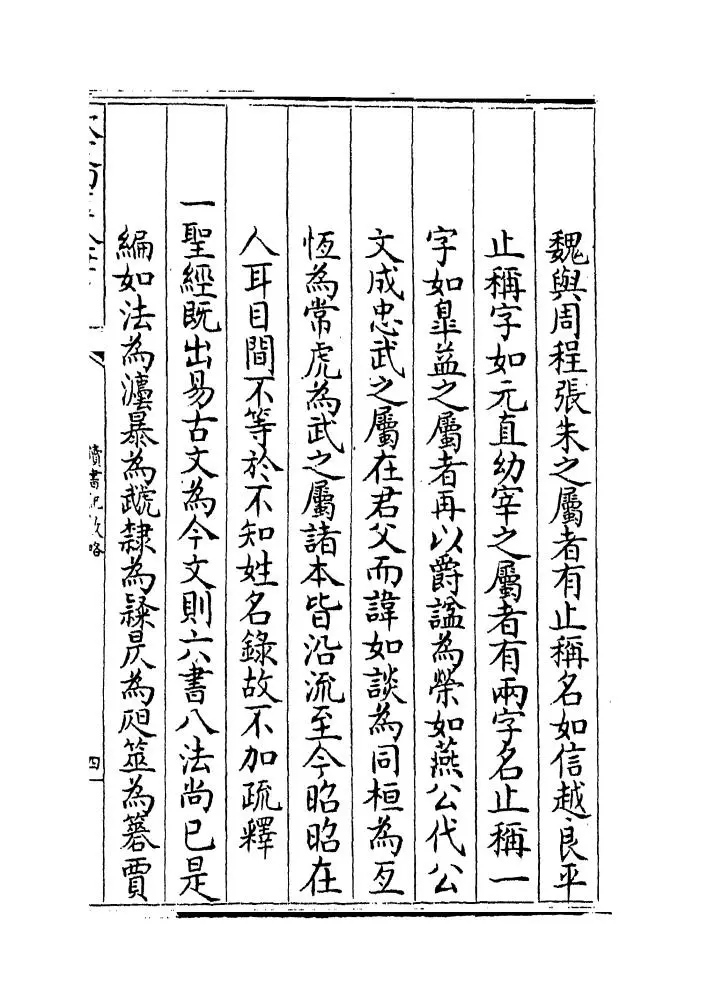 魏與周程張朱之屬者有止稱名如信越良平
止稱字如元直幼宰之屬者有兩字名止稱一
字如臯益之屬者再以爵諡為榮如燕公代公
文成忠武之屬在君父而諱如談為同桓為亙
恆為常虎為武之屬諸本皆沿流至今昭昭在
人耳目間不等於不知姓名錄故不加疏釋
一聖經既出易古文為今文則六書八法尚已是
編如法為灋暴為虣隸為𨽻昃為𣅦筮為簭賈
讀書記數略
四